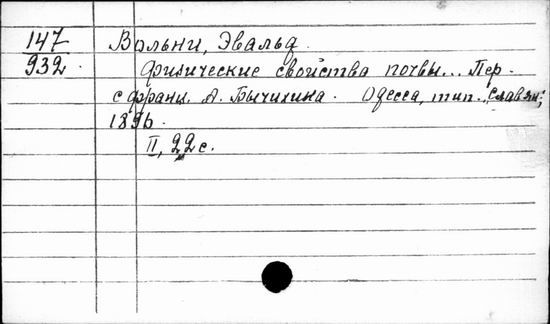 147 Вольни, Эвальд.
932. Физические свойства почвы... Пер.
с франц. А. Бычихина. Одесса, тип. "Славян",
1896.
II, 22 с.